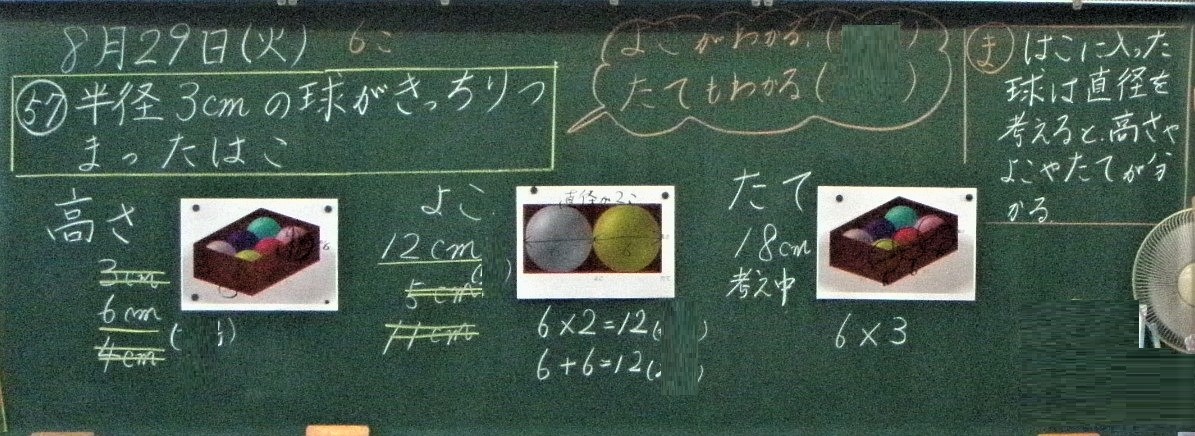 8月29日(火) 6こ
57 半径3cmの球がきっちりつ
まったはこ
よこがわかる(
たてもわかる(
ま はこに入った
球は直径を
考えると、高さや
よこやたてが分
かる
高さ
3cm
6cm
4cm
よこ
12cm
5cm
11cm
直径が2こ
6×2=12
6+6=12
たて
18cm
考え中
6×3